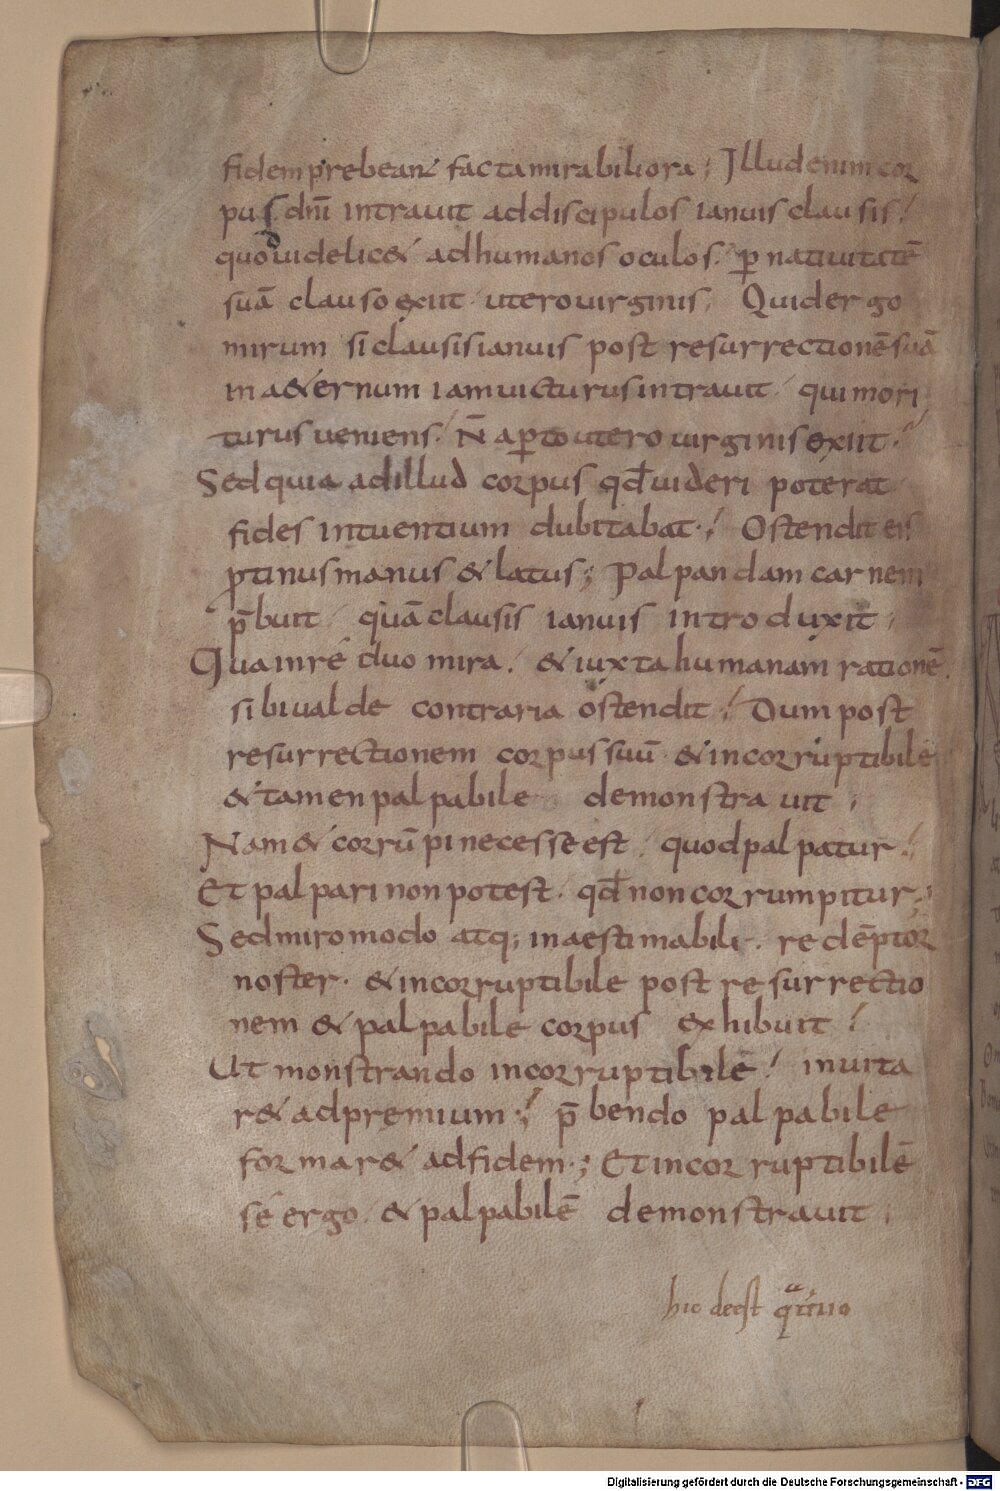 fidem prebeant facta mirabiliora; Illud enim cor
pus dnī intrauit ad discipulos ianuis clausis.
quod uidelic& ad humanos oculos. ꝑ natiuitatē
suā clauso exiit utero uirginis, Quid ergo
mirum si clausis ianuis post resurrectionē suā
in a&ernum iam uicturus intrauit. qui mori
turus ueniens. N̄ aꝑto utero uirginis exiit.
Sed quia ad illud corpus qđ uideri poterat
fides intuentium dubitabat. Ostendit eis
ꝓtinus manus & latus; Palpandam carnem
p̄buit. quā clausis ianuis introduxit;
Qua in re duo mira. & iuxta humanam rationē.
sibi ualde contraria ostendit. Dum post
resurrectionem corpus suū & incorruptibile
& tamen palpabile demonstrauit;
Nam & corrūpi necesse est. quod palpatur.
Et palpari non potest. qđ non corrumpitur;
Sed miro modo atq; inaestimabili. redēptor
noster. & incorruptibile post resurrectio
nem & palpabile corpus exhibuit.
Ut monstrando incorruptibilē. inuita
r& ad pręmium; p̄bendo palpabile
formar& ad fidem; Et incorruptibilē
se ergo. & palpabilē demonstrauit;
hic deest